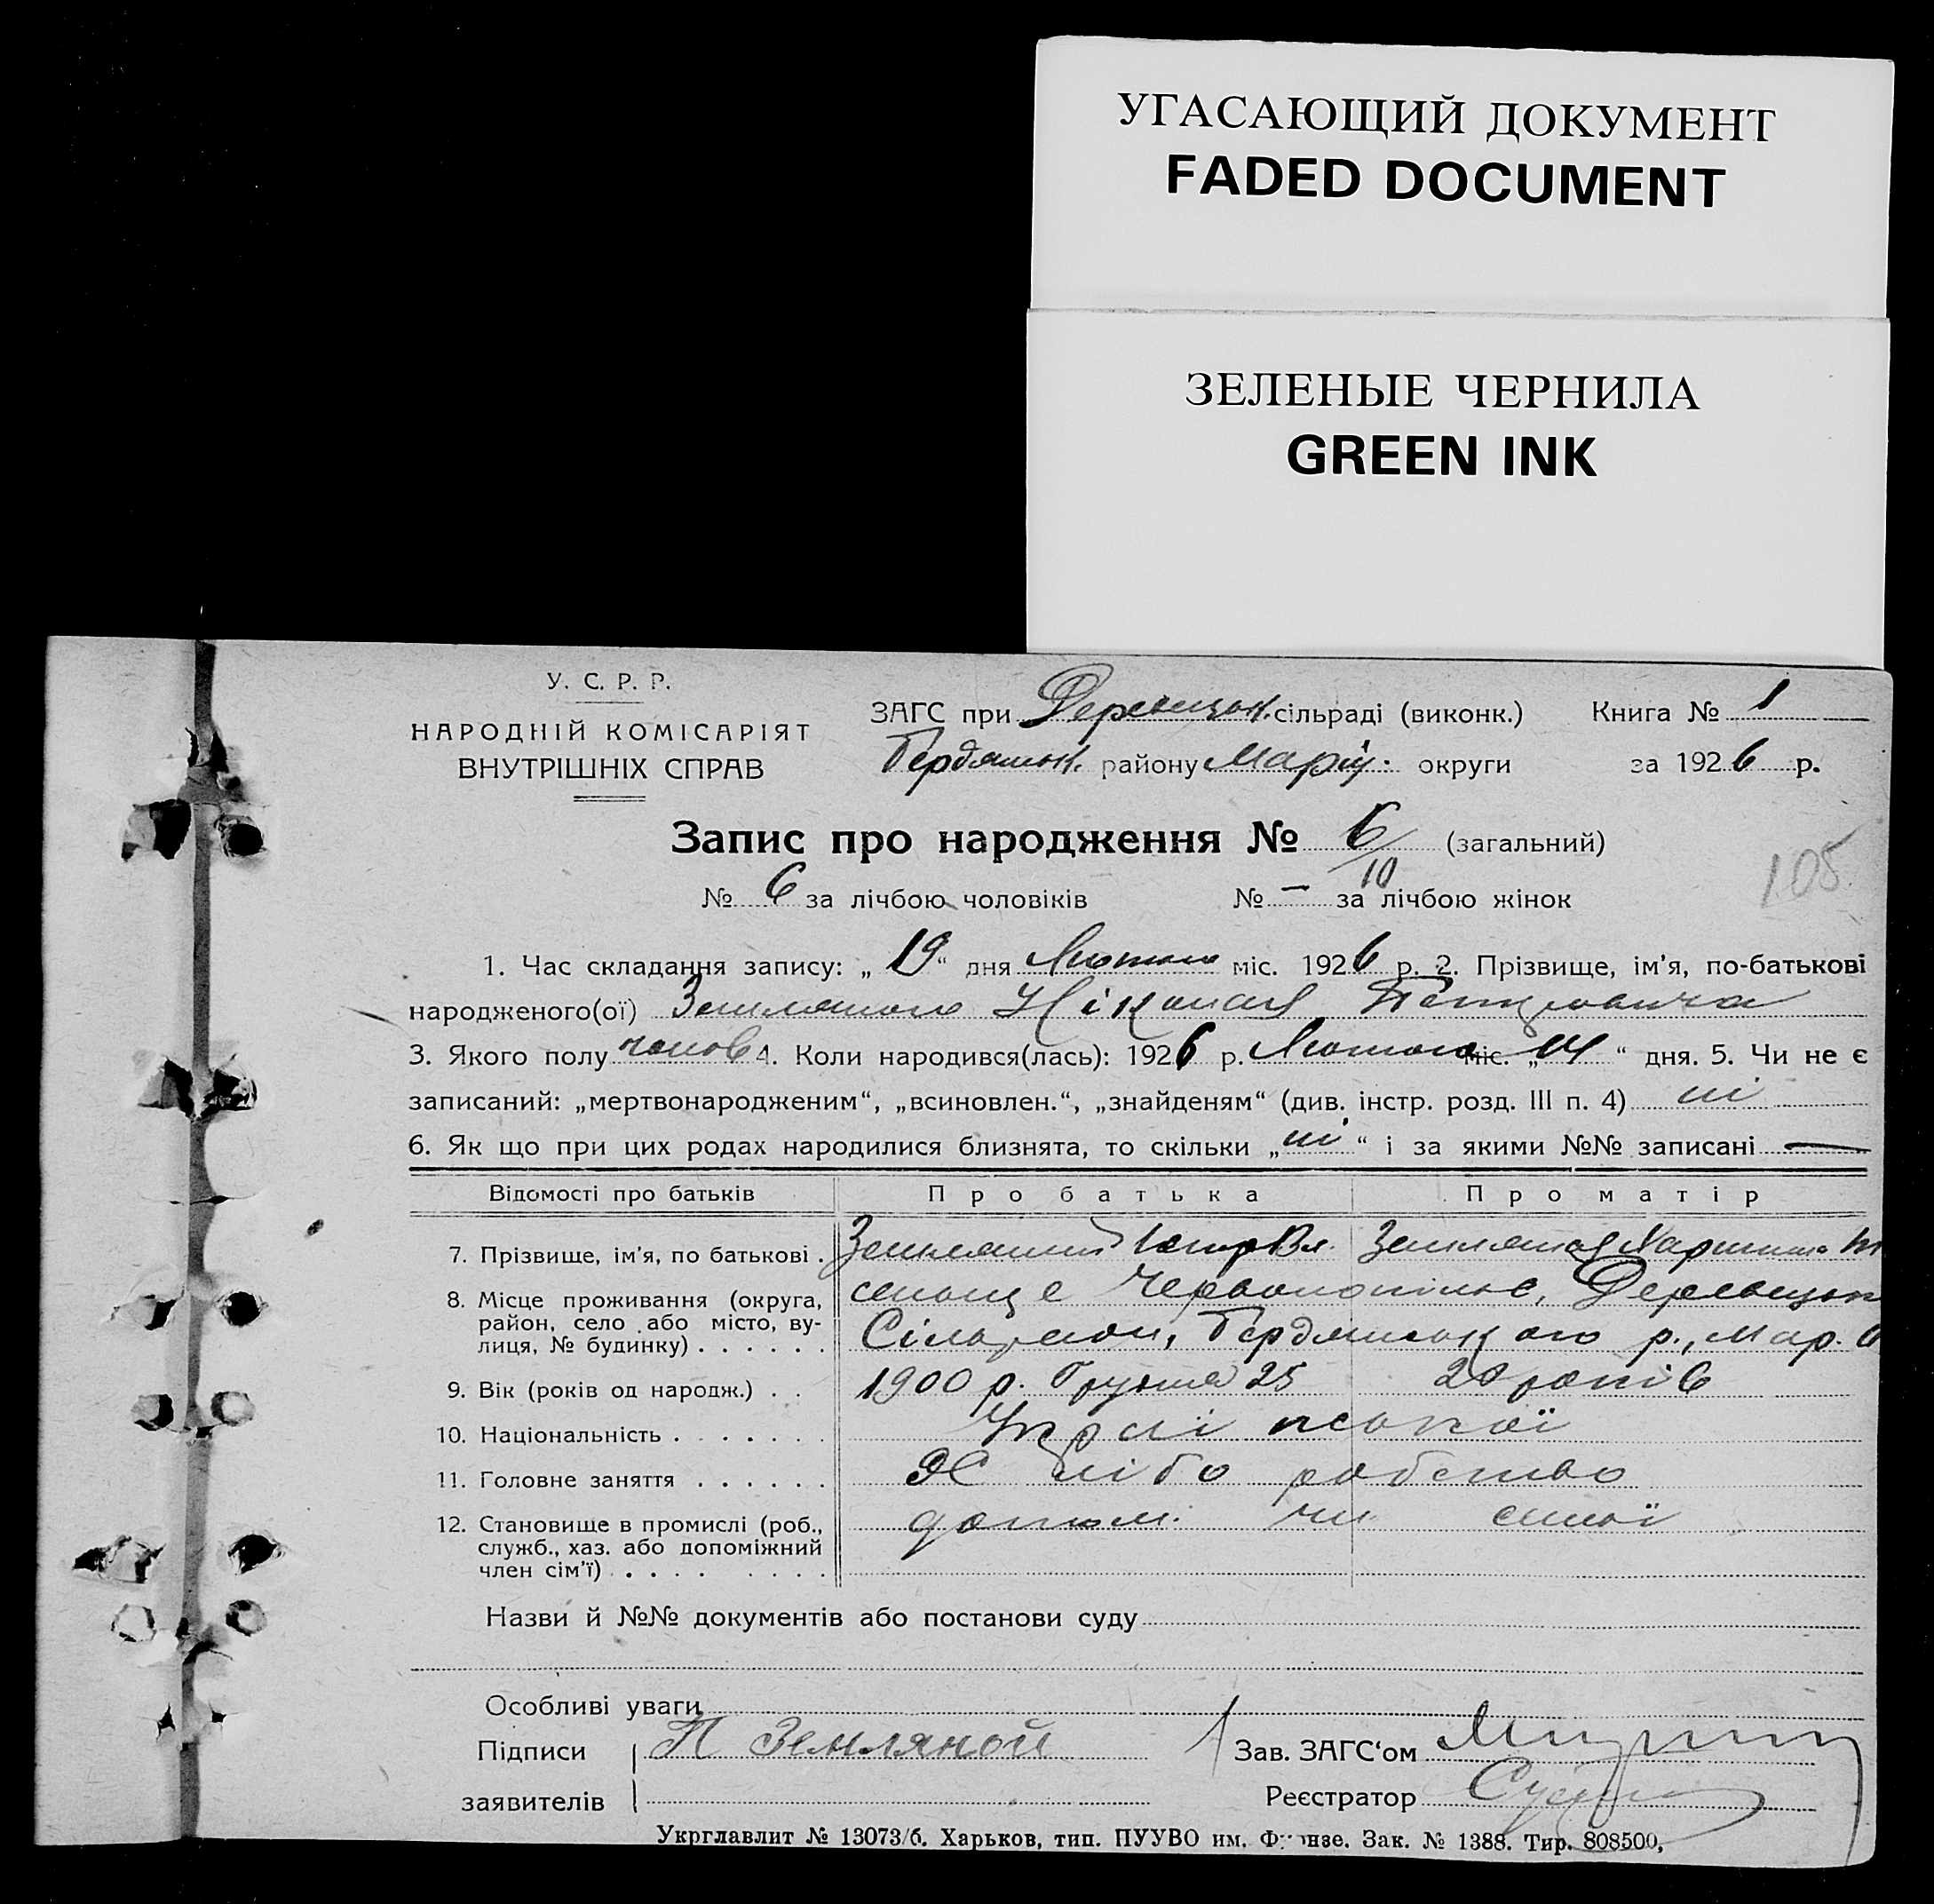 УГАСАЮЩИЙ ДОКУМЕНТ
FADED DOCUMENT
ЗЕЛЕНЫЕ ЧЕРНИЛА
GREEN INK
У. С. Р. Р.
НАРОДНІЙ КОМІСАРІЯТ
ВНУТРІШНІХ СПРАВ
ЗАГС при Деревецьк. сільраді (виконк.) Книга № 1
Бердянськ. району Марiу. округи за 1926 р.
Запис про народження № 6/10 (загальний)
№ 6 за лічбою чоловіків № — за лічбою жінок
105
1. Час складання запису: „19“ дня Лютого міс. 1926 р. 2. Прізвище, ім’я, по-батькові
народженого(ої) Земляного Ніколая Петровича
3. Якого полу чолов 4. Коли народився(лась): 1926 р. Лютого міс. „14“ дня. 5. Чи не є
записаний: „мертвонародженим“, „всиновлен.“, „знайденям“ (див. інстр. розд. III п. 4) ні
6. Як що при цих родах народилися близнята, то скільки „ні“ і за якими №№ записані —
Відомості про батьків Про батька Про матір
7. Прізвище, ім’я, по батькові . Земляний Вл. Земляная
8. Місце проживання (округа, район, село або місто, вулиця, № будинку) . . . . . . селище Червонопілье,
Сільради, Бердянського р., Мар.
9. Вік (років од народж.) . . 1900 р. Грудня 25 20 років
10. Національність . . . . . . . Украінської
11. Головне заняття . . . . . . Хлібо робство
12. Становище в промислі (роб., служб., хаз. або допоміжний член сім’ї) . . . . . . . . допом. чл. сімї
Назви й №№ документів або постанови суду
Особливі уваги
Підписи П Земляной Зав. ЗАГС‘ом
заявителів Реєстратор
Укрглавлит № 13073/б. Харьков, тип. ПУУВО им. Фрунзе. Зак. № 1388. Тир. 808500,